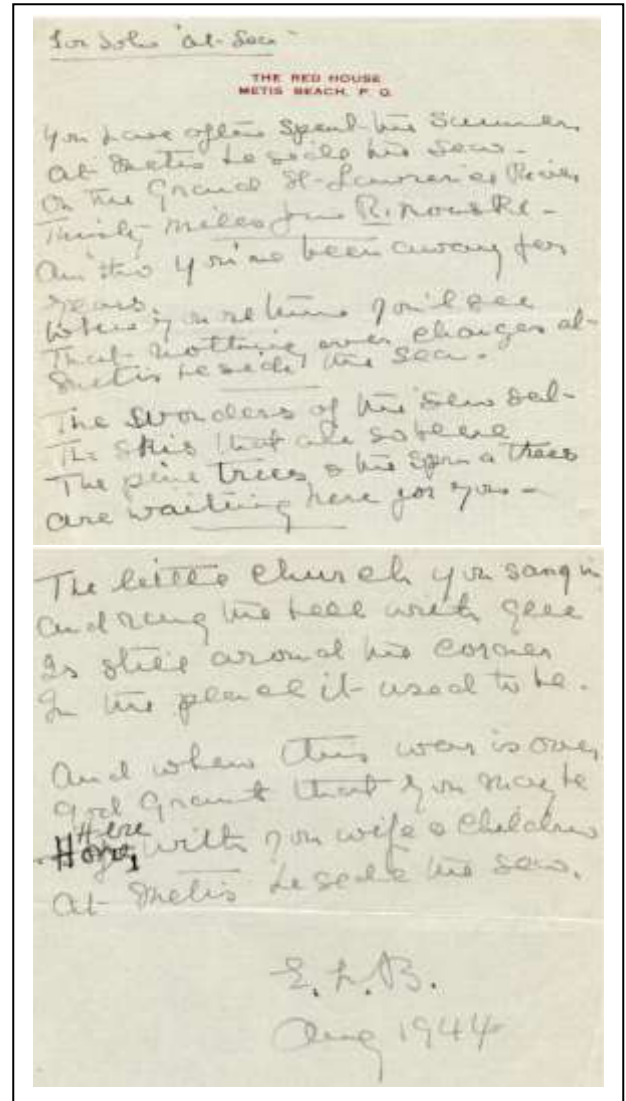 For John "at-Sea"
THE RED HOUSE
METIS BEACH, P. Q.
You have often spent the Summer
At Metis beside the sea -
On the Grand St-Lawrence River
Thirty miles from Rimouski -
An' tho you've been away for
years
When you return you'll see
That nothing ever changes at
Metis beside the sea.
The wonders of the sunset
The skies that are so
The pine trees & the spruce trees
are waiting here for you -
The little church you sang in
And rung the bell with glee
Is still around the corner
In the place it used to be.
And when this war is over
God Grant that you may be
Here
Home, with your wife & children
At Metis beside the sea.
E. L. B.
Aug 1944